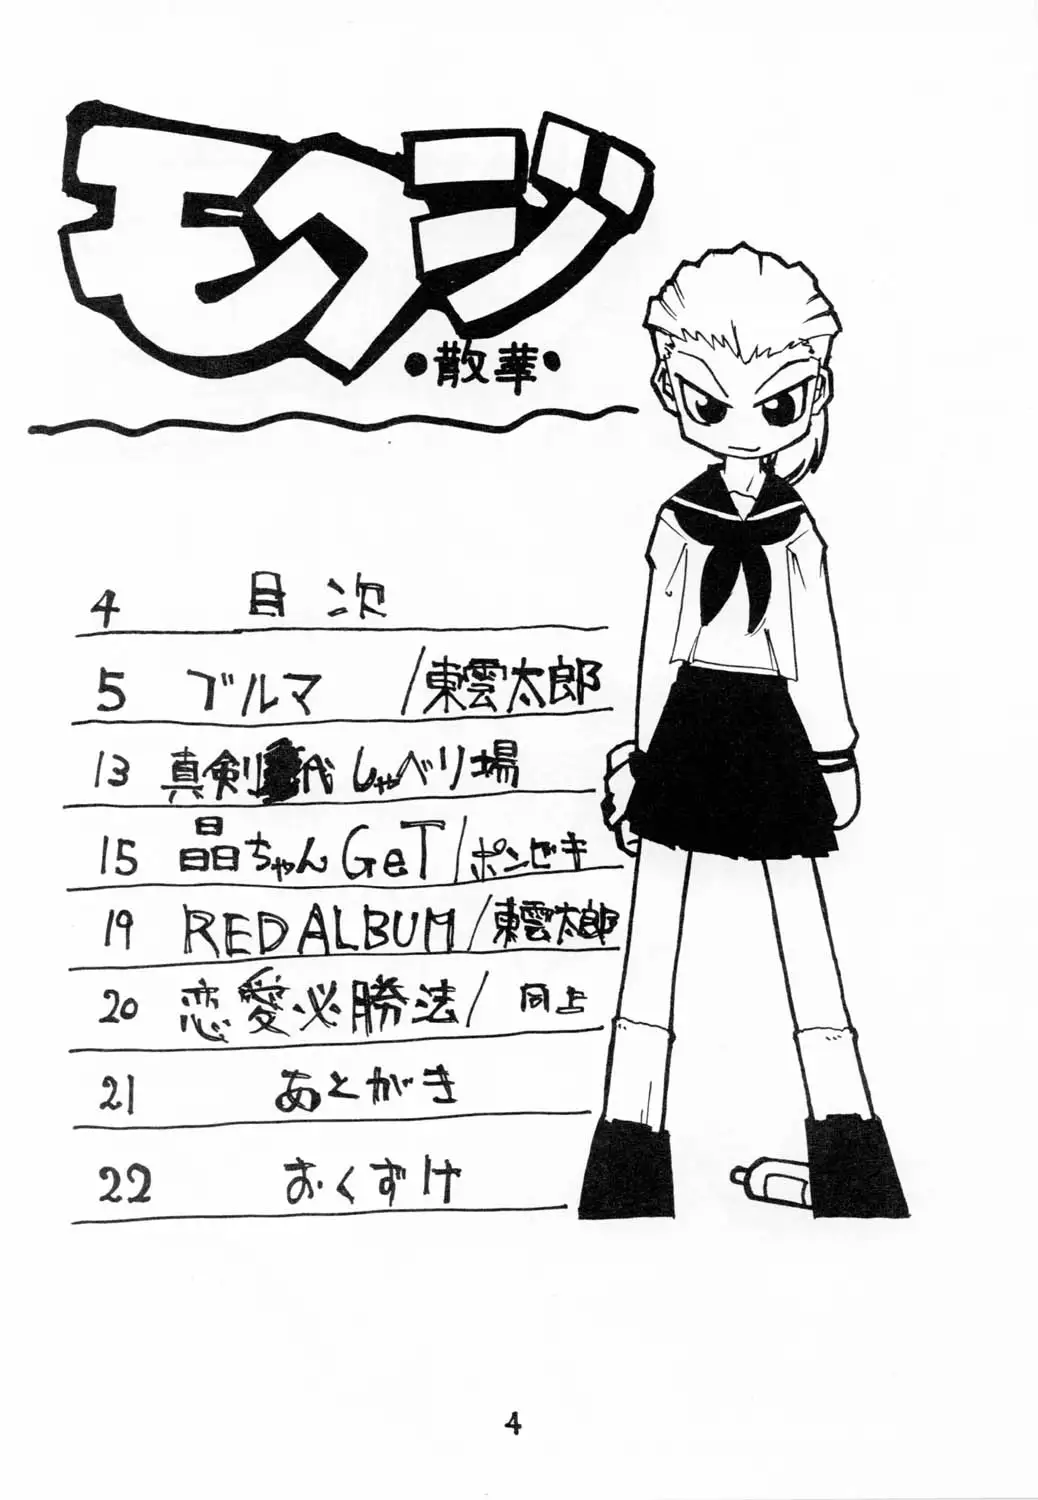 モクジ
•散華•
4 目次
5 ブルマ /東雲太郎
13 真剣 代しゃべり場
15 晶ちゃんGeT/ポンセキ
19 RED ALBUM/東雲太郎
20 恋愛必勝法/同上
21 あとがき
22 おくずけ
4